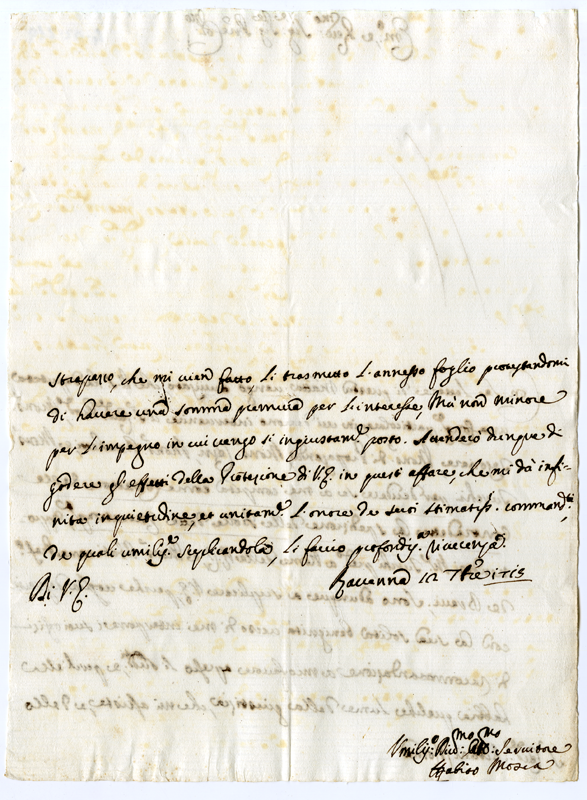 Strapazzo, che mi vien fatto Li trasmetto l'annesso foglio protestandomi
di havere una somma premura per l'interesse, Mà non minore
per l'impegno in cui vengo si ingiustam.e posto. Attenderò dunque di
godere gli effetti della Protezione di V.E. in questo affare, che mi dà infi-
nita inquietudine, et unitam.e l'onore de suoi stimatiss. command.ti,
de quali umiliss.e supplicandola, Li faccio profondiss.a riverenza.
Di V.E. Ravenna 12 7bre 1715
Umiliss.o Div.mo Obb.mo Servitore
Mosca